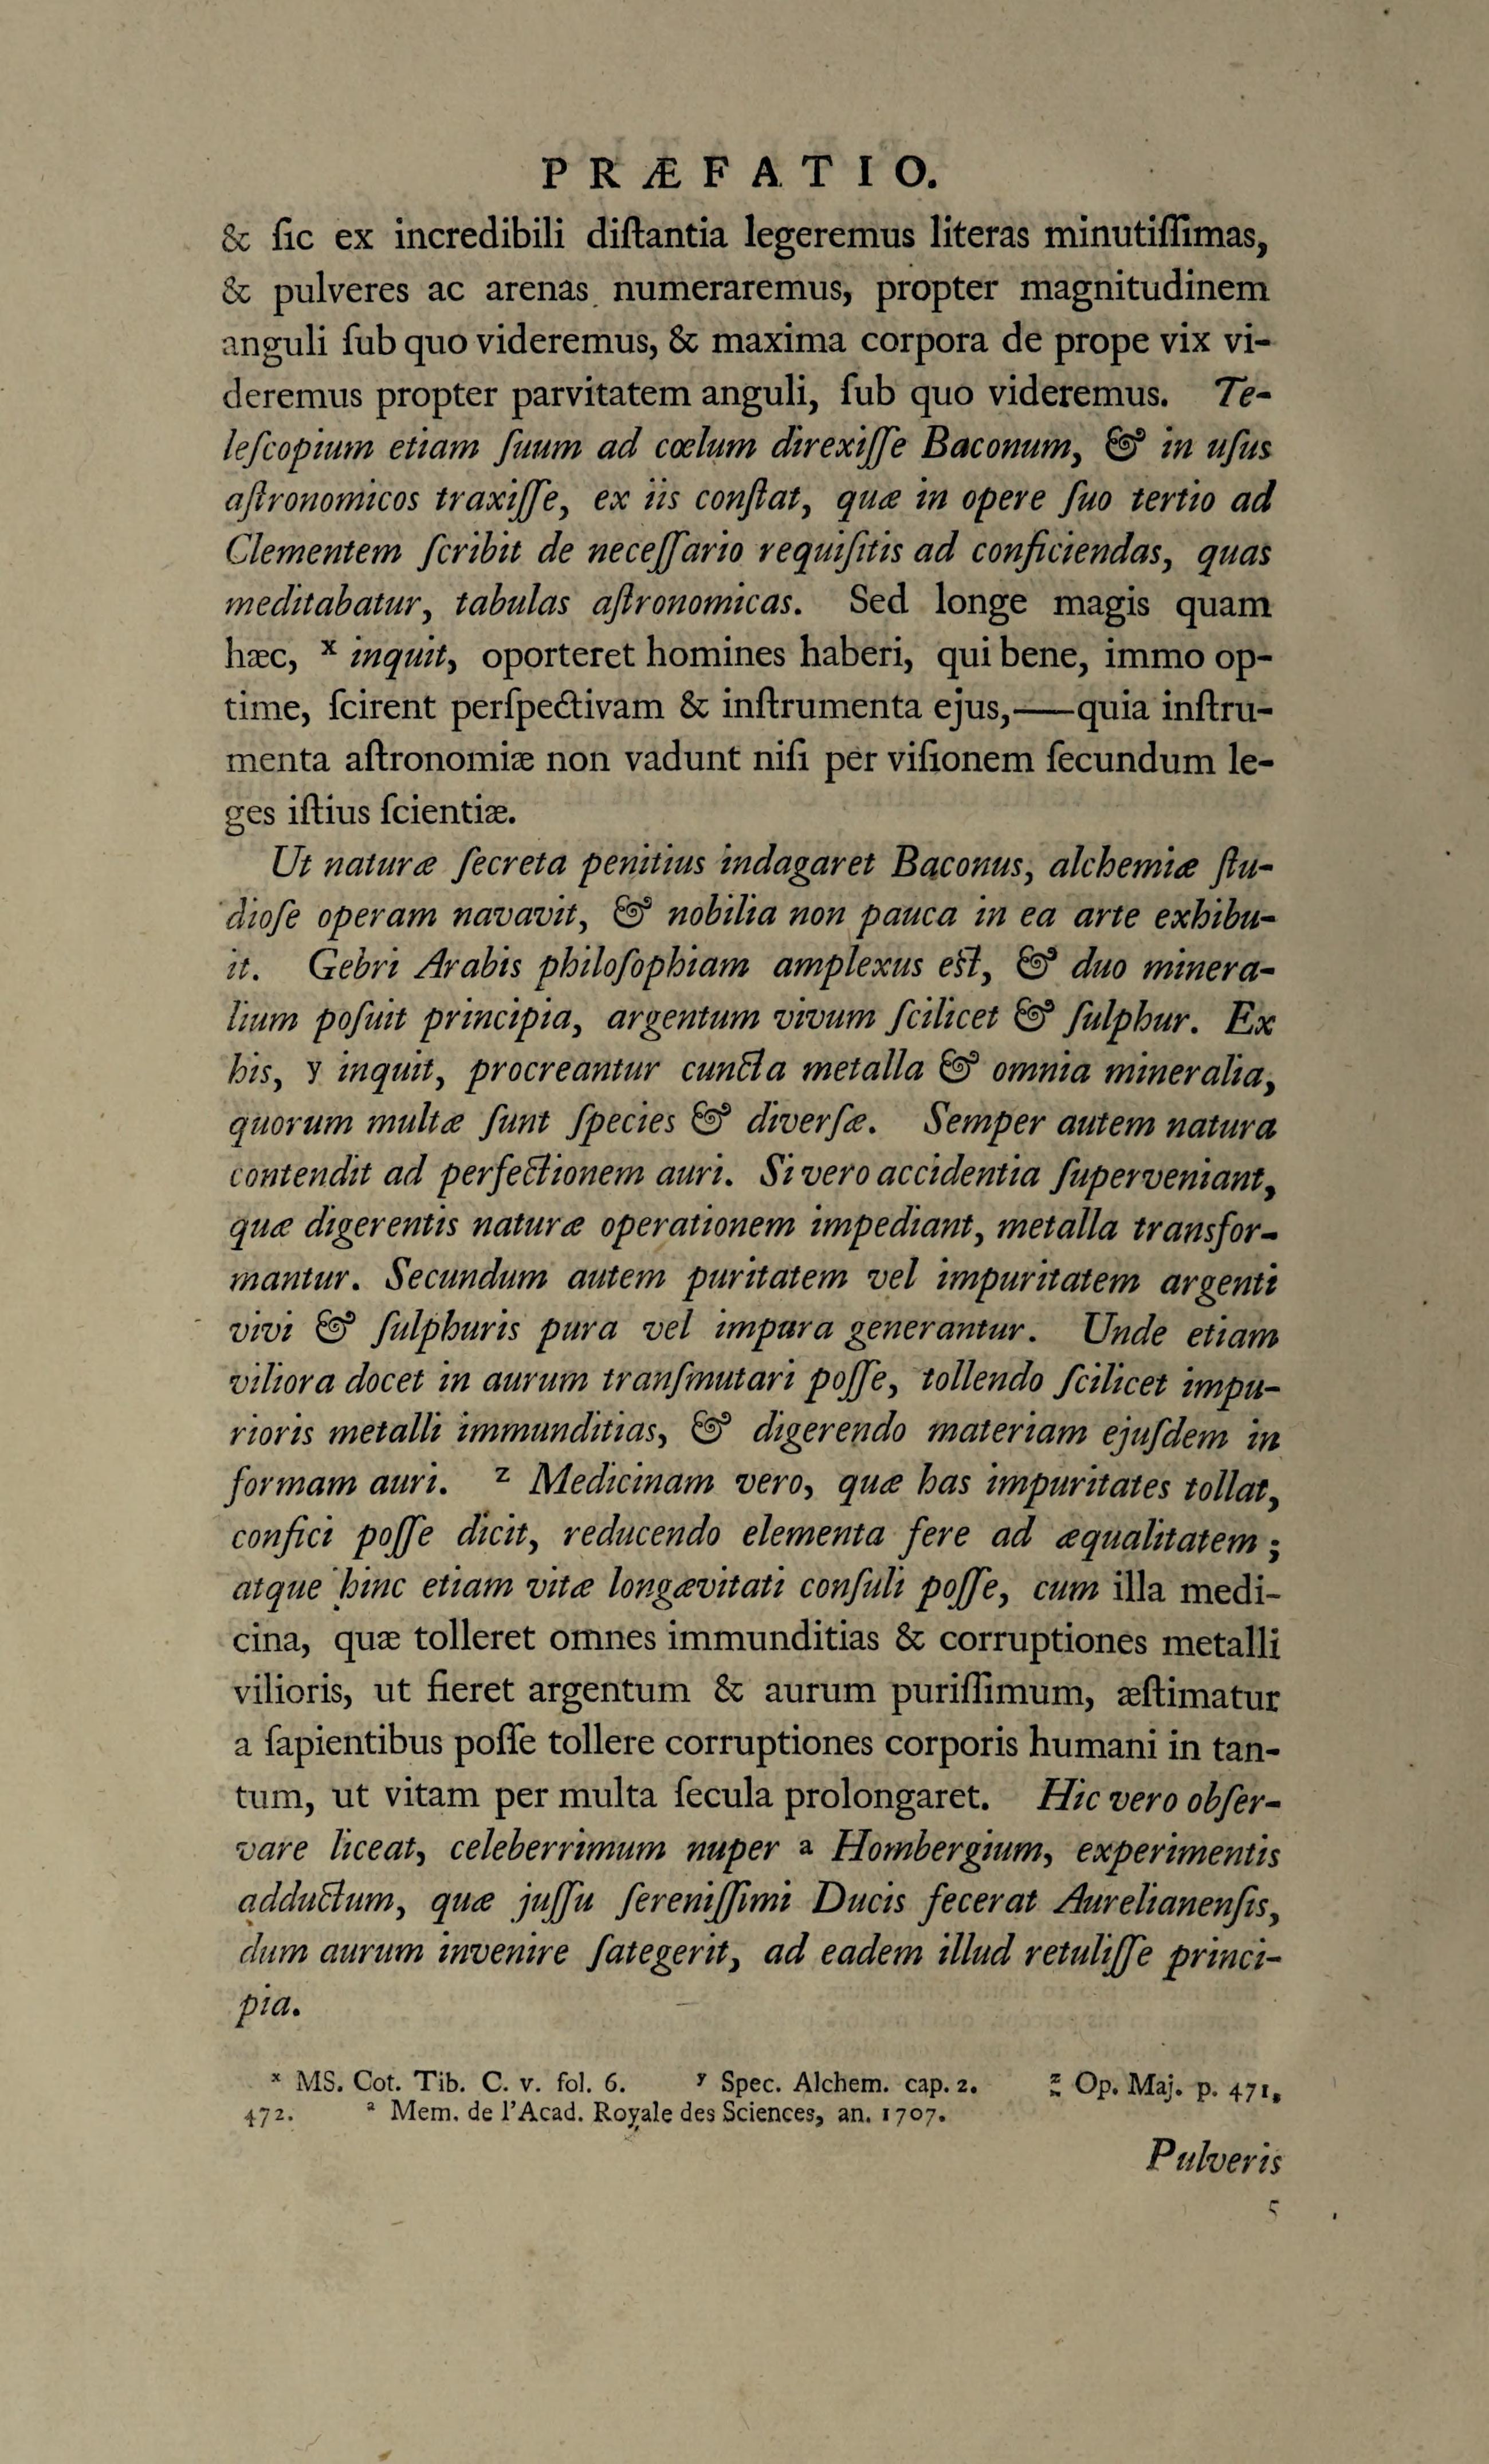 PRÆFATIO.
& ſic ex incredibili diſtantia legeremus literas minutiſſimas,
& pulveres ac arenas numeraremus, propter magnitudinem
anguli ſub quo videremus, & maxima corpora de prope vix vi-
deremus propter parvitatem anguli, ſub quo videremus. Te-
leſcopium etiam ſuum ad cœlum direxiſſe Baconum, & in uſus
aſtronomicos traxiſſe, ex iis conſtat, quæ in opere ſuo tertio ad
Clementem ſcribit de neceſſario requiſitis ad conficiendas, quas
meditabatur, tabulas aſtronomicas. Sed longe magis quam
hæc, x inquit, oporteret homines haberi, qui bene, immo op-
time, ſcirent perſpectivam & inſtrumenta ejus,——quia inſtru-
menta aſtronomiæ non vadunt niſi per viſionem ſecundum le-
ges iſtius ſcientiæ.
Ut naturæ ſecreta penitius indagaret Baconus, alchemiæ ſtu-
dioſe operam navavit, & nobilia non pauca in ea arte exhibu-
it. Gebri Arabis philoſophiam amplexus eſt, & duo minera-
lium poſuit principia, argentum vivum ſcilicet & ſulphur. Ex
his, y inquit, procreantur cuncta metalla & omnia mineralia,
quorum multæ ſunt ſpecies & diverſæ. Semper autem natura
contendit ad perfectionem auri. Si vero accidentia ſuperveniant,
quæ digerentis naturæ operationem impediant, metalla transfor-
mantur. Secundum autem puritatem vel impuritatem argenti
vivi & ſulphuris pura vel impura generantur. Unde etiam
viliora docet in aurum tranſmutari poſſe, tollendo ſcilicet impu-
rioris metalli immunditias, & digerendo materiam ejuſdem in
formam auri. z Medicinam vero, quæ has impuritates tollat,
confici poſſe dicit, reducendo elementa fere ad æqualitatem;
atque hinc etiam vitæ longævitati conſuli poſſe, cum illa medi-
cina, quæ tolleret omnes immunditias & corruptiones metalli
vilioris, ut fieret argentum & aurum puriſſimum, æſtimatur
a ſapientibus poſſe tollere corruptiones corporis humani in tan-
tum, ut vitam per multa ſecula prolongaret. Hic vero obſer-
vare liceat, celeberrimum nuper a Hombergium, experimentis
adductum, quæ juſſu ſereniſſimi Ducis fecerat Aurelianenſis,
dum aurum invenire ſategerit, ad eadem illud retuliſſe princi-
pia.
x MS. Cot. Tib. C. v. fol. 6. y Spec. Alchem. cap. 2. z Op. Maj. p. 471,
472. a Mem. de l'Acad. Royale des Sciences, an. 1707.
Pulveris
5